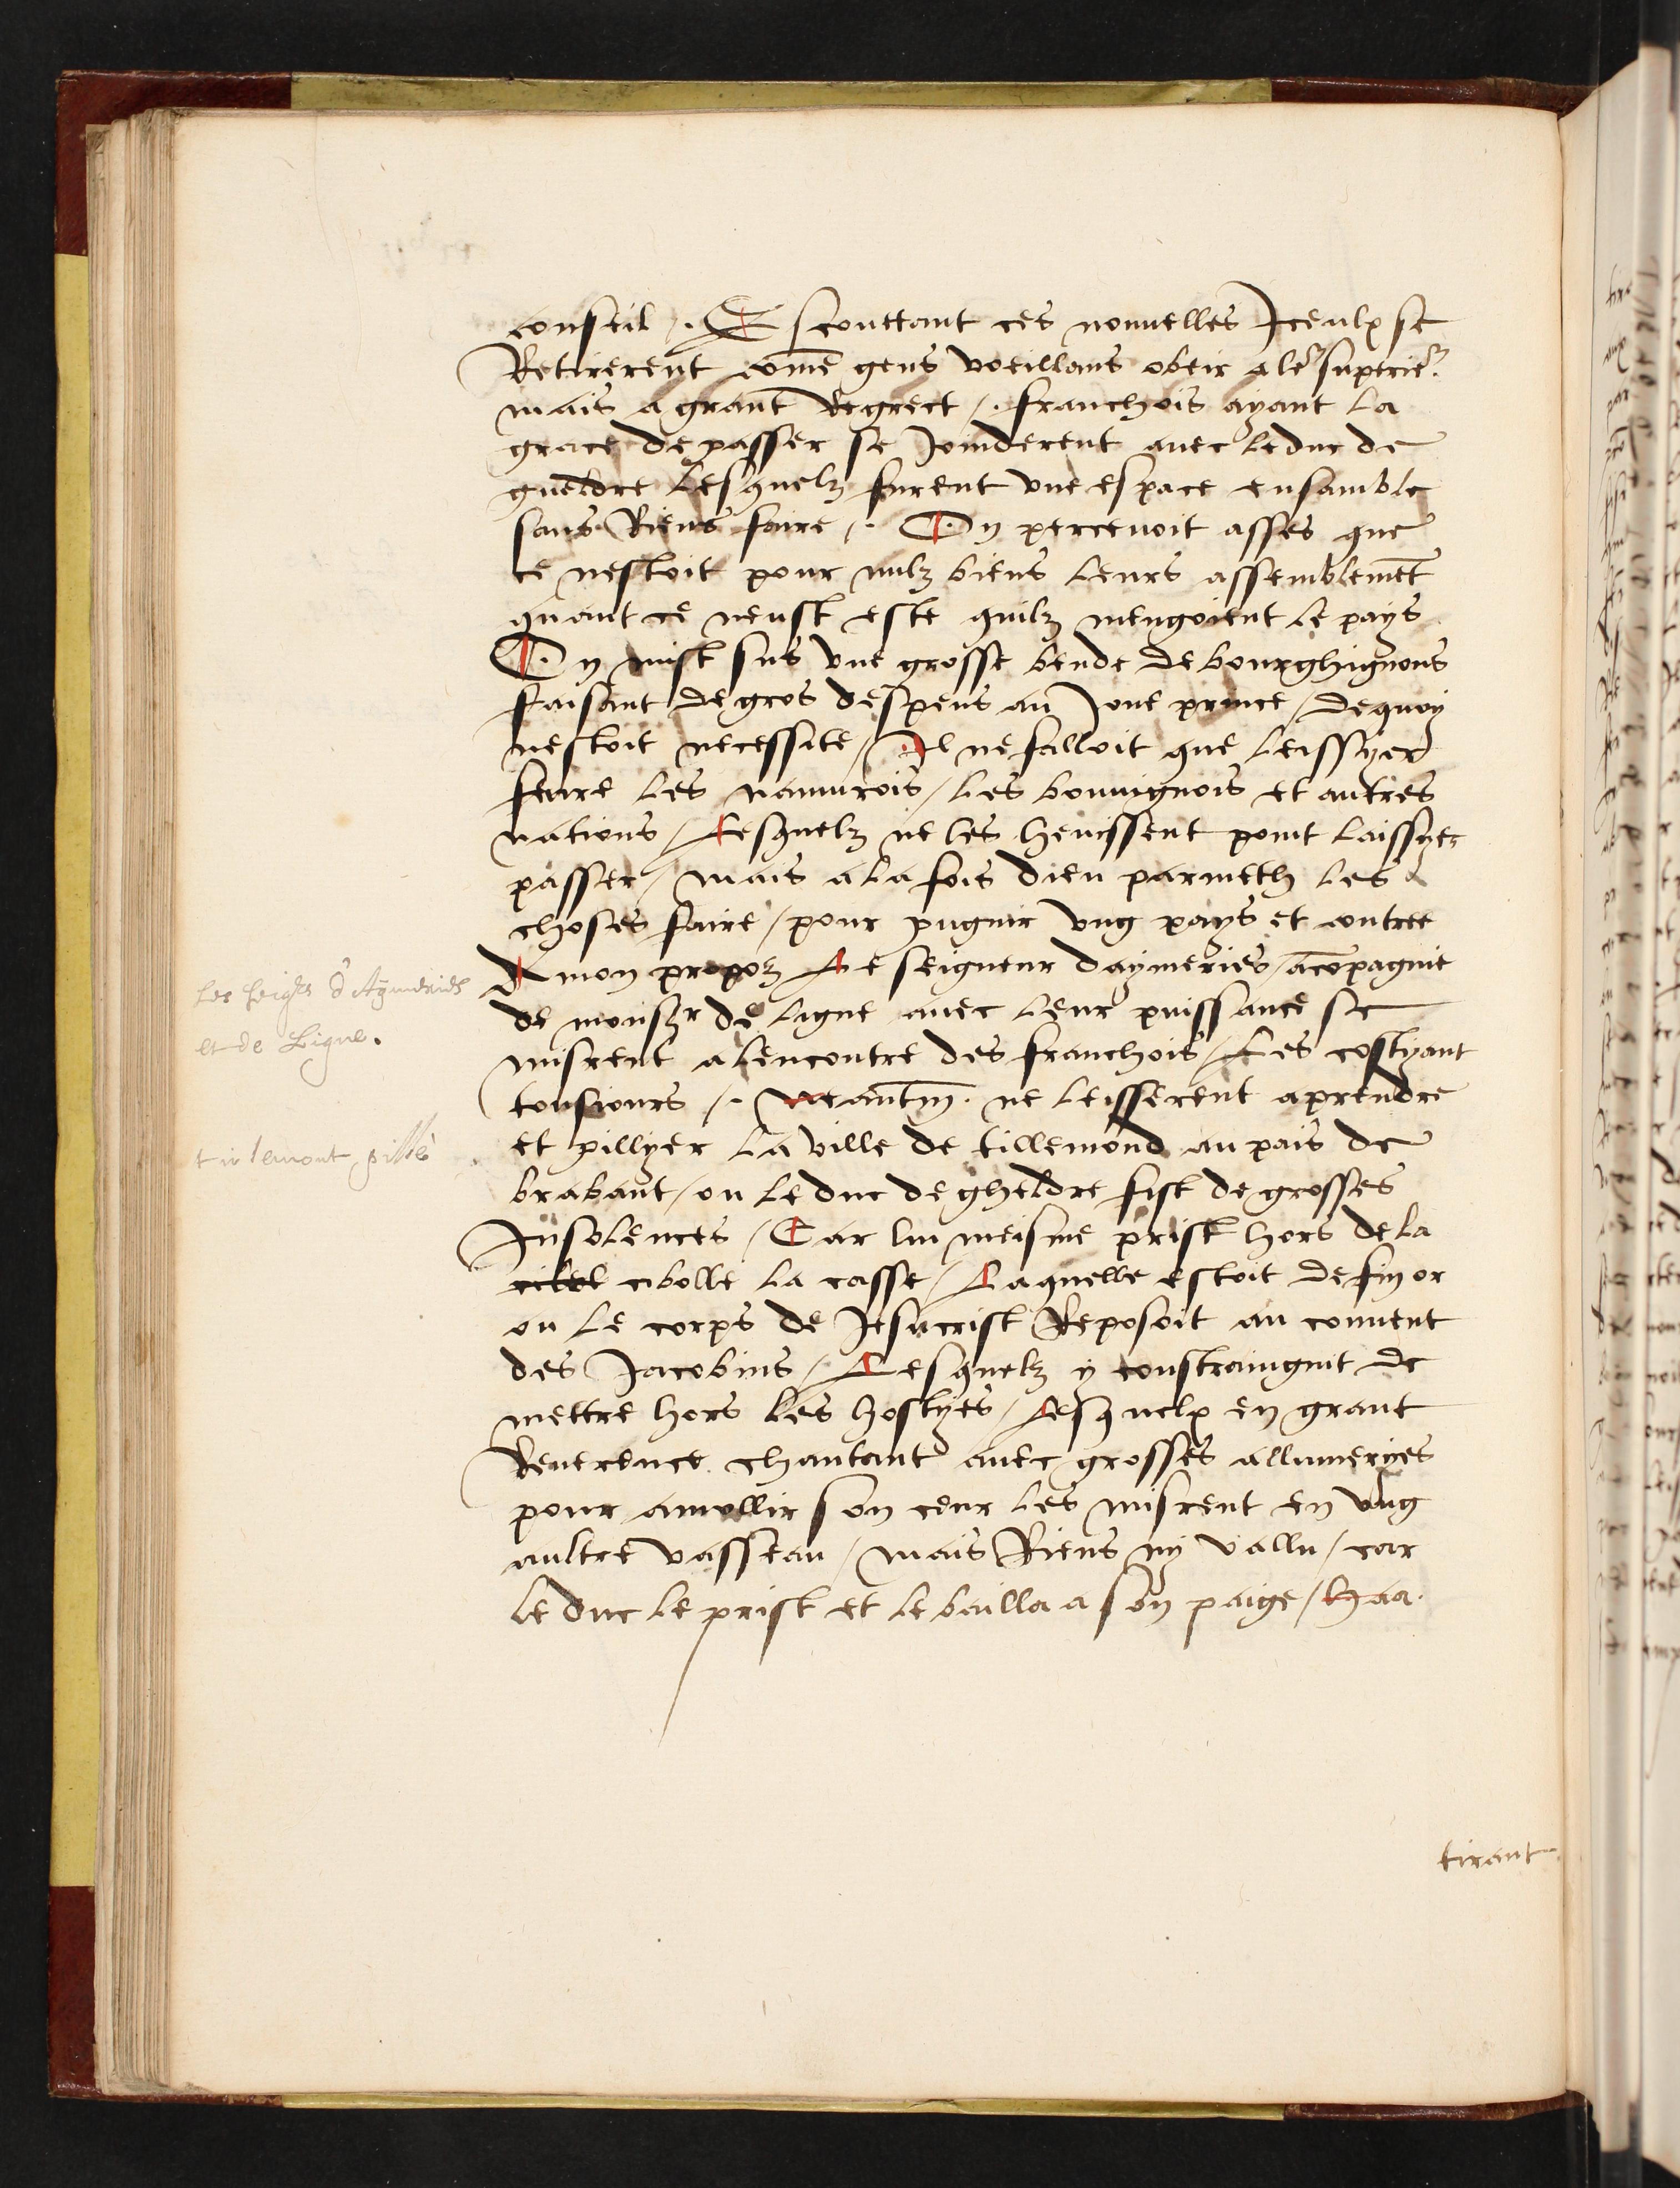 conseil /. Escouttant ces nouvelles Iceulx se
Retirerent come gens voeillans obeir a le superie.
mais a grant Regrect /. franchois ayant la
grace de passer se Joinderent avec le duc de
gueldre lesquelz furent une espace ensamble
sans Riens faire /. On percevoit asses que
ce nestoit pour nulz biens leurs assemblemet
quant ce neust este quilz mengoient le pays
On mist sus une grosse bende de bourghignons
faisant de gros despens au Jone prince / de quoy
nestoit necessite / Il ne falloit que leissyer
feare les namurois / les bouvignois et autres
nations / Lesquelz ne les heuissent point laissyer
passer / mais a la fois dieu parmeth les
choses faire / pour pugnir ung pays et contree
A mon propoz Le seigneur daymeries / acopagnie
de monsr de ligne avec leur puissance se
misrent a lencontre des franchois / Les costyant
tousiours /. Neantm. ne leisserent a prendre
et pillyer la ville de tillemond au pais de
brabant / ou le duc de gheldre fist de grosses
Insolences / Car lui meisme prist hors de la
cibolle la casse / Laquelle estoit de fin or
ou le corps de Jesucrist Reposoit au couvent
des Jacobins / Lesquelz y constraingnit de
mettre hors les hostyes / Lesquelx en grant
Reverence chantant avec grosses allumeryes
pour amollir son ceur les misrent en ung
aultre vasseau / mais Riens ny vallu / car
le duc le prist et le bailla a son paige / haa.
tirant
Les seigrs d'Aymeries
et de Ligne.
tirlemont pillé